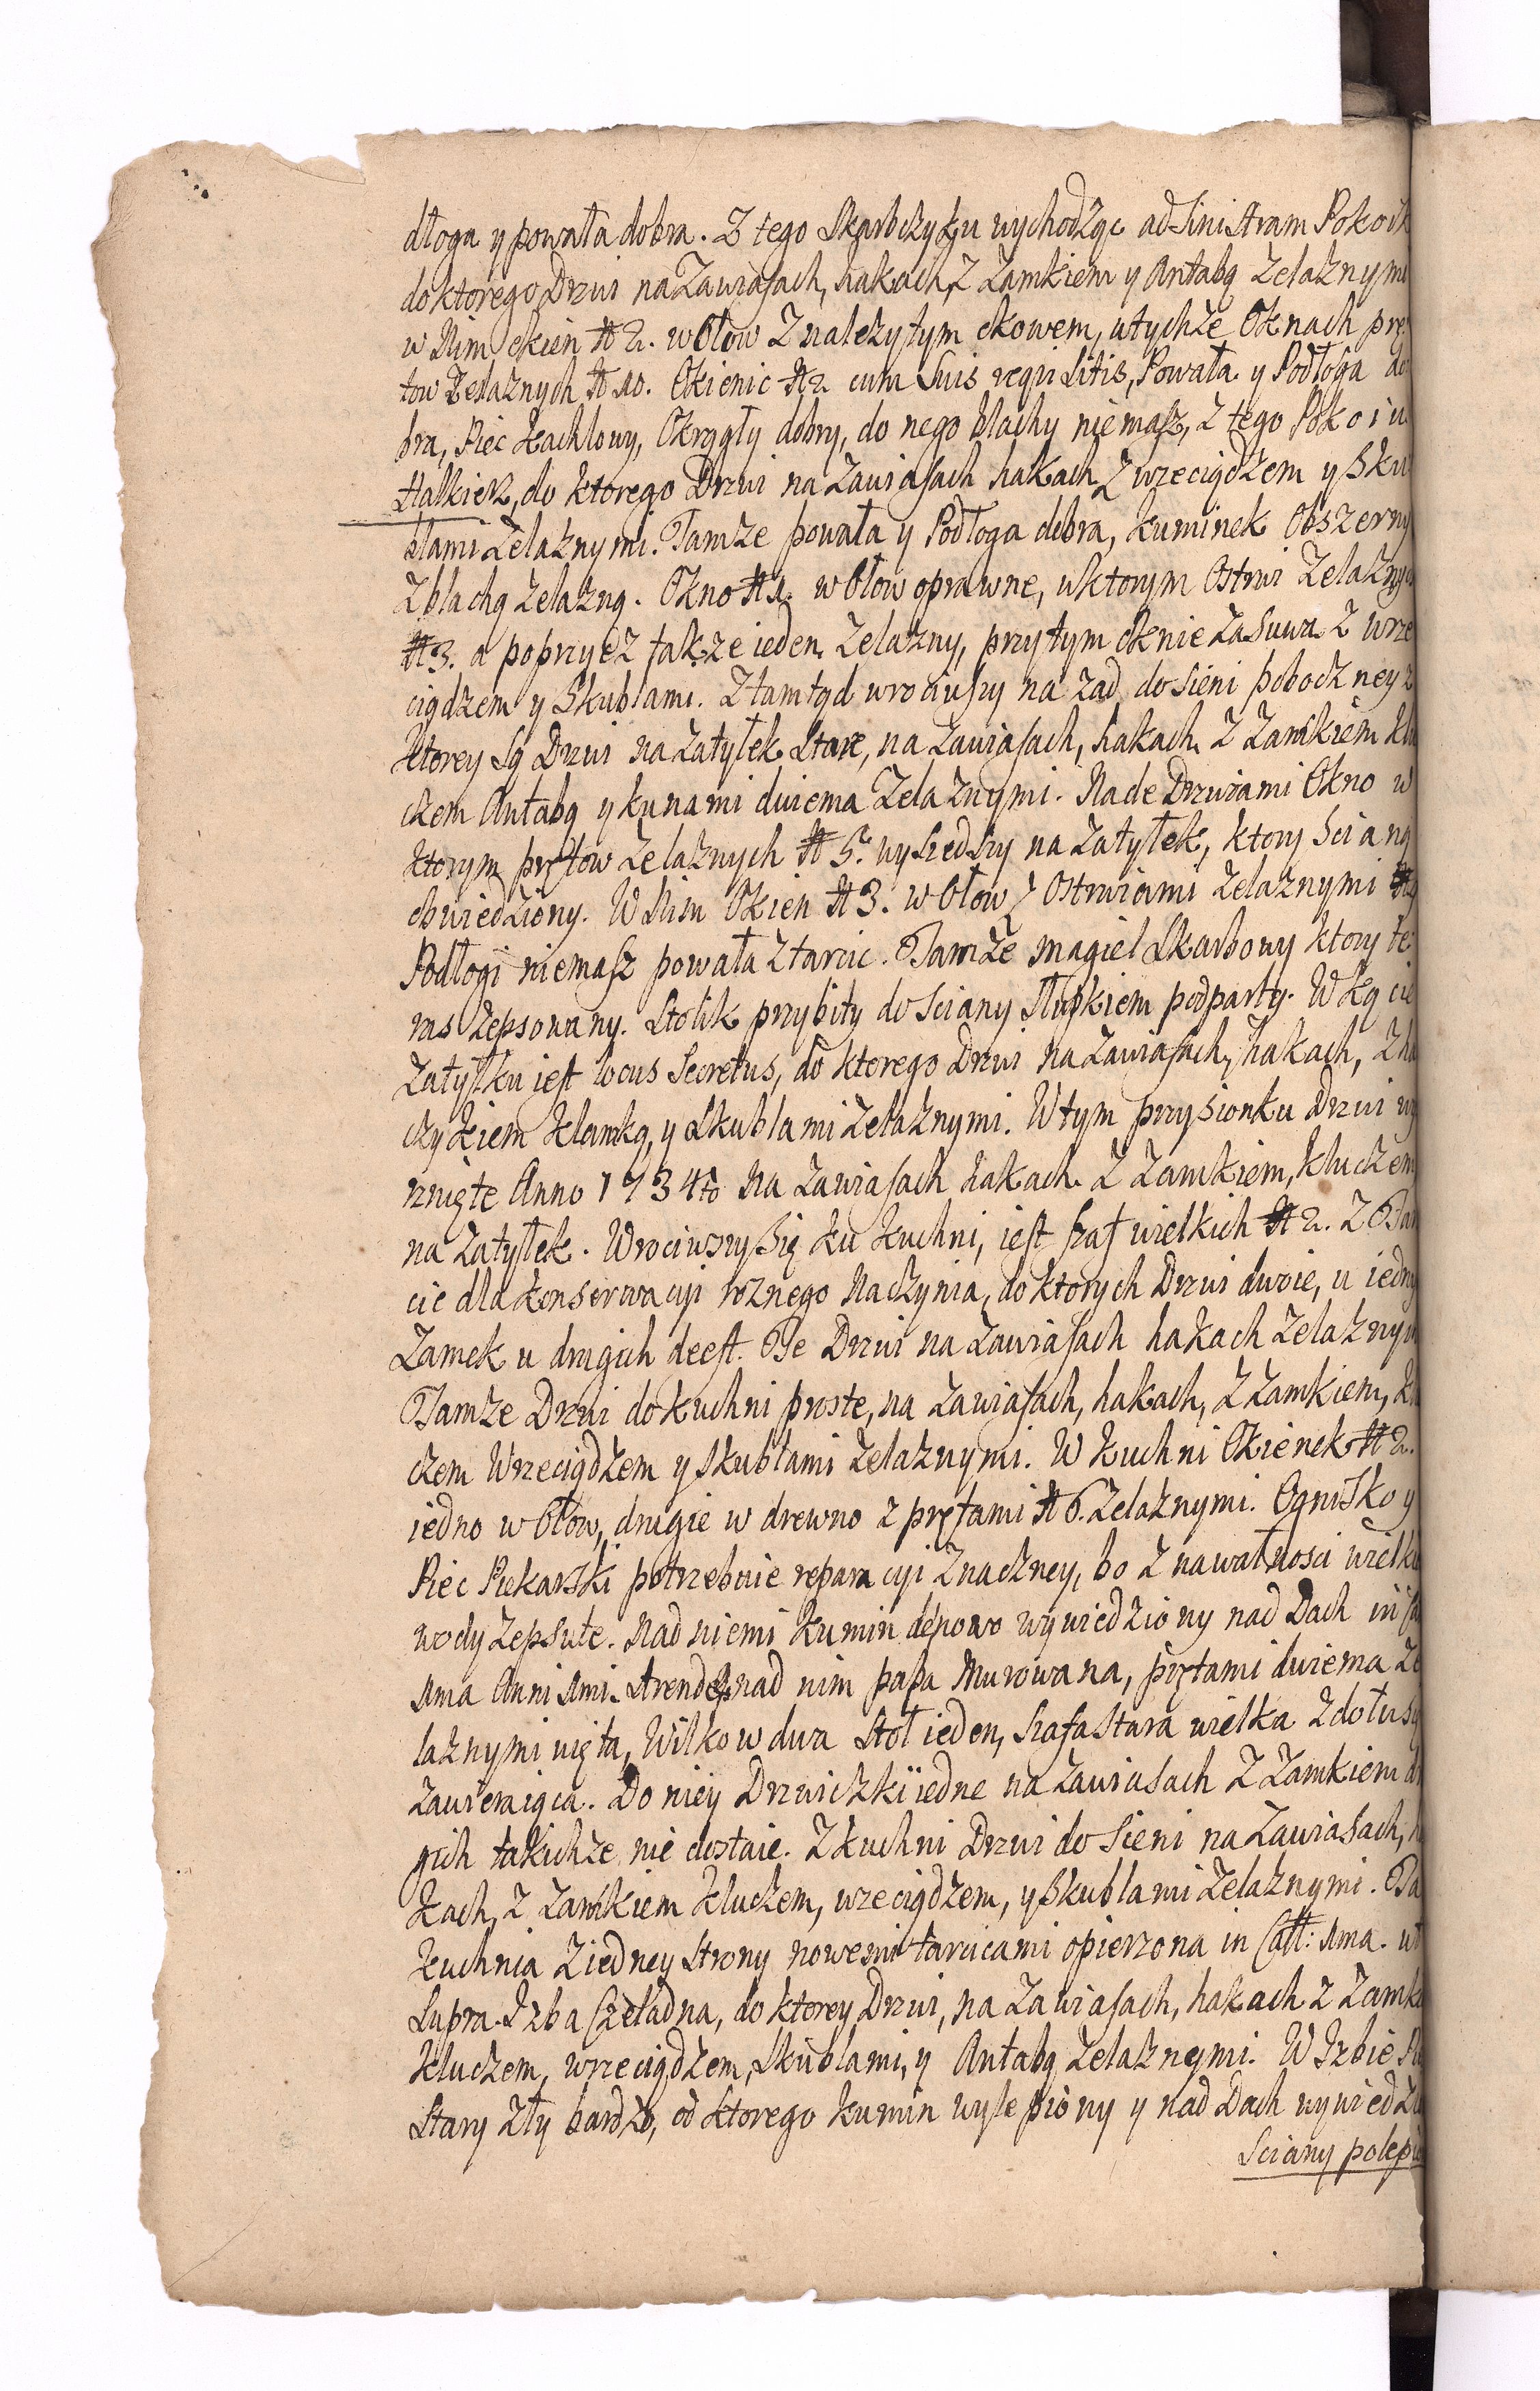 dłoga y powała dobra. Z tego Skarbczyku wychodząc ad Sinistram Pokoik
do ktorego Drzwi na Zawiasach, hakach, z Zamkiem y Antabą Zelaznymi
w Nim okien # 2. w Ołow z nalezytym okowem, utychze Oknach prę
tow Zelaznych # 10. Okienic # 2 cum Suis requisitis, Powała y Podłoga do
bra, Piec Kachlowy, Okrągły dobry, do nego blachy niemasz, z tego Pokoiu
Halkierz, do ktorego Drzwi na Zawiasach hakach z wrzeciądzem y Sku
blami Zelaznymi. Tamze powała y Podłoga dobra, Kuminek Obszerny
z blachą zelazną. Okno # 1. w Ołow oprawne, uktorym Ostrwi Zelaznych
# 3. a poprzycz także ieden Zelazny, przytym oknie Zasuwa z wrze
ciądzem y Skublami. Ztamtąd wrociwszy na zad do Sieni poboczney z
ktorey są Drzwi na Zatyłek Stare, na Zawiasach, hakach z Zamkiem klu
czem Antabą y kunami dwiema Zelaznymi. Nade Drzwiami Okno w
ktorym prętow Zelaznych # 5. wyszedszy na Zatyłek, ktory Scianą
obwiedziony. W Nim Okien # 3. w Ołow z Ostrwiami Zelaznymi
Podłogi niemasz powała z tarcic. Tamze magiel Skarbowy ktory te
ras zepsowany. Stolik przybity do Sciany Słupkiem podparty. W Kącie
Zatyłku iest locus Secretus, do ktorego Drzwi na Zawiasach, hakach, z ha
czykiem klamką, y Skublami Zelaznymi. W tym przysionku Drzwi wy
rznięte Anno 1734to Na Zawiasach hakach z Zamkiem, Kluczem
na Zatyłek. Wrociwszy Się ku Kuchni, iest szaf wielkich # 2. z Tar
cic dla konserwacyi roznego Naczynia, do ktorych Drzwi dwoie, u iednych
Zamek u drugich deest. Te Drzwi na Zawiasach hakach Zelaznymi
Tamze Drzwi do Kuchni proste, na Zawiasach, hakach, z Zamkiem, klu
czem Wrzeciądzem y Skublami Zelaznymi. W Kuchni Okienek # 2.
iedno w Ołow, drugie w drewno z prętami # 6. Zelaznymi. Ognisko y
Piec Piekarski potrzebuie reparacyi znaczney, bo z nawałnosci wielkiey
wody zepsute. Nad niemi Kumin denowo wywiedziony nad Dach in
1ma Anni 1mi Arendę nad nim papa Murowana, prętami dwiema Ze
laznymi uięta, Wilkow dwa Stoł ieden, Szafa Stara wielka z dołu się
zawieraiąca. Do niey Drzwiczki iedne na Zawiasach z Zamkiem dru
gich takichze nie dostaie. Z kuchni Drzwi do Sieni na Zawiasach, ha
kach, z Zamkiem Kluczem, wrzeciądzem, y Skublami Zelaznymi. Ta
Kuchnia z iedney Strony nowemi tarcicami opierzona in Catt: 1ma. ut
Supra. Izba Czeladna, do ktorey Drzwi, na Zawiasach, hakach z Zamkiem
Kluczem, wrzeciądzem, Skublami, y Antabą Zelaznymi. W Izbie Piec
Stary zły bardzo, od ktorego Kumin wylepiony y nad Dach wywiedzio
Sciany polepio